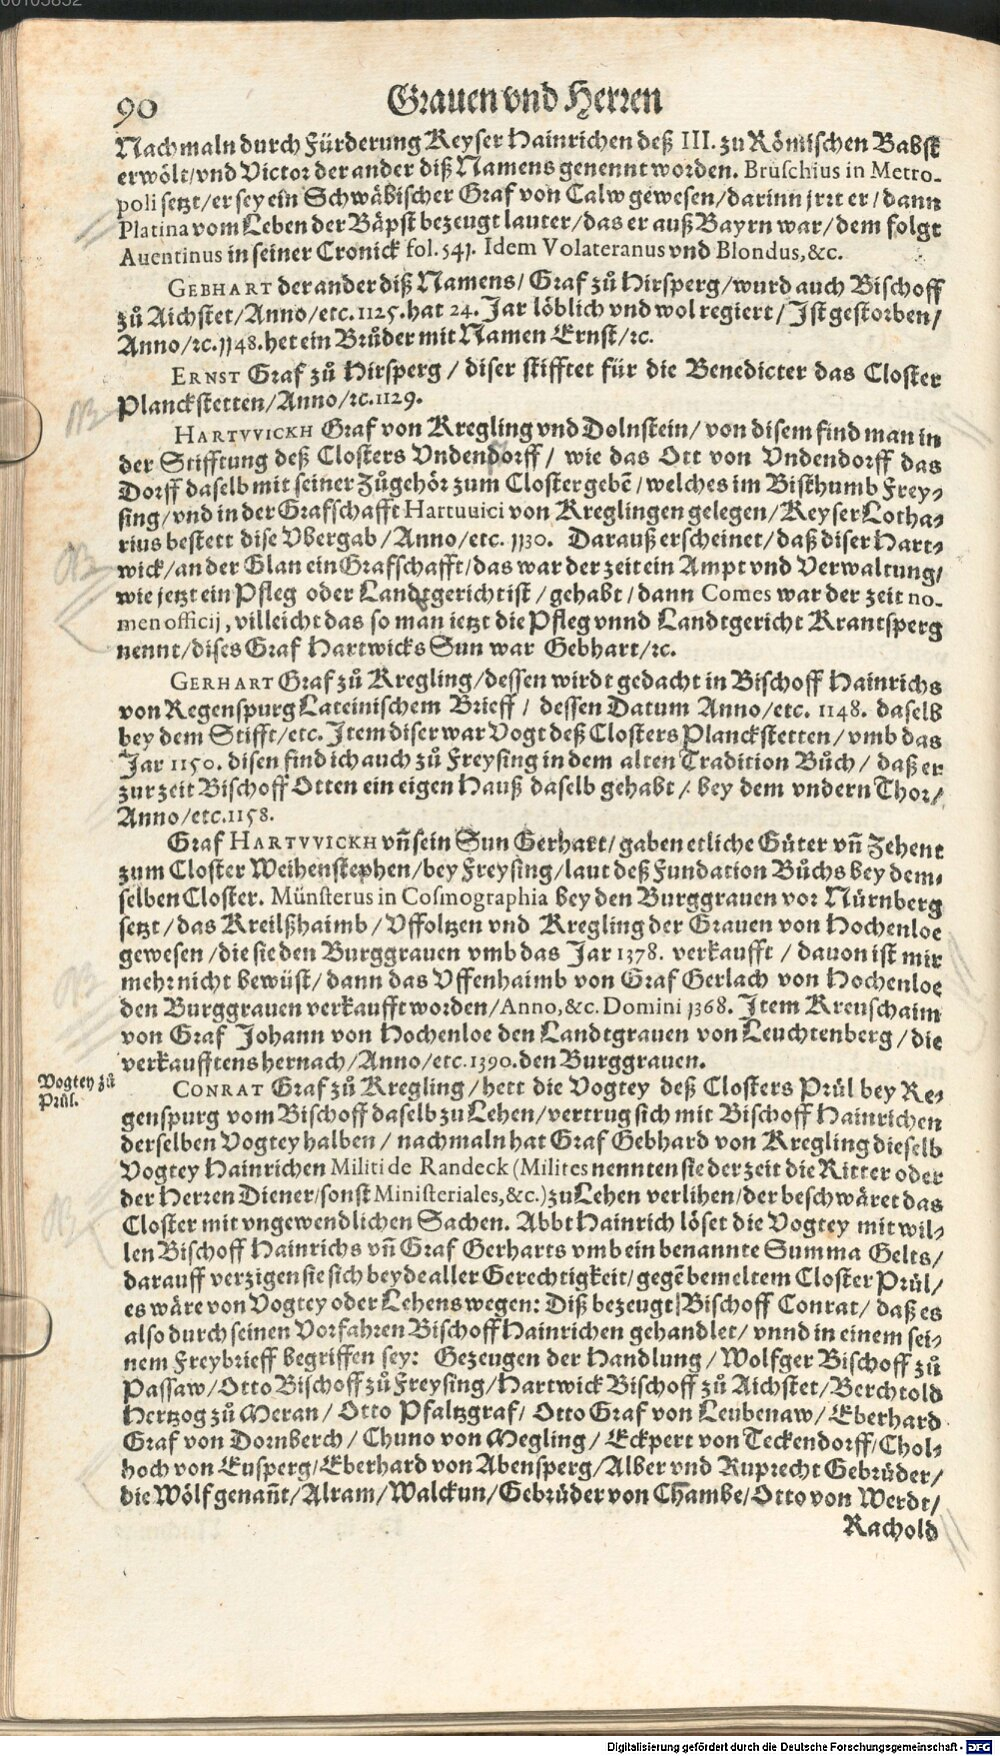 90 Grauen vnd Herren
Nachmaln durch Fürderung Keyser Hainrichen deß III. zu Römischen Babst
erwölt/vnd Victor der ander diß Namens genennt worden. Bruschius in Metro-
poli setzt/er sey ein Schwäbischer Graf von Calw gewesen/darinn jrrt er/dann
Platina vom Leben der Bäpst bezeugt lauter/das er auß Bayrn war/dem folgt
Auentinus in seiner Cronick fol. 541. Idem Volateranus vnd Blondus,&c.
GEBHART der ander diß Namens/ Graf zů Hirsperg/wurd auch Bischoff
zů Aichstet/Anno/etc.1125.hat 24. Jar löblich vnd wol regiert/Jst gestorben/
Anno/ꝛc.1148.het ein Brůder mit Namen Ernst/ꝛc.
ERNST Graf zů Hirsperg / diser stifftet für die Benedicter das Closter
Planckstetten/Anno/ꝛc.1129.
HARTVVICKH Graf von Kregling vnd Dolnstein/von disem find man in
der Stifftung deß Closters Vndendorff / wie das Ott von Vndendorff das
Dorff daselb mit seiner Zůgehör zum Closter gebē/welches im Bisthumb Frey-
sing/vnd in der Grafschafft Hartuuici von Kreglingen gelegen/Keyser Lotha-
rius bestett dise Vbergab/Anno/etc. 1130. Darauß erscheinet/daß diser Hart-
wick/an der Glan ein Grafschafft/das war der zeit ein Ampt vnd Verwaltung/
wie jetzt ein Pfleg oder Landtgericht ist/gehabt/dann Comes war der zeit no-
men officij, villeicht das so man ietzt die Pfleg vnnd Landtgericht Krantsperg
nennt/dises Graf Hartwicks Sun war Gebhart/ꝛc.
GERHART Graf zů Kregling/dessen wirdt gedacht in Bischoff Hainrichs
von Regenspurg Lateinischem Brieff / dessen Datum Anno/etc. 1148. daselb
bey dem Stifft/etc. Item diser war Vogt deß Closters Planckstetten/vmb das
Jar 1150. disen find ich auch zů Freysing in dem alten Tradition Bůch / daß er
zur zeit Bischoff Otten ein eigen Hauß daselb gehabt / bey dem vndern Thor/
Anno/etc.1158.
Graf HARTVVICKH vñ sein Sun Gerhart/gaben etliche Güter vñ Zehent
zum Closter Weihenstephen/bey Freysing/laut deß Fundation Bůchs bey dem-
selben Closter. Münsterus in Cosmographia bey den Burggrauen vor Nürnberg
setzt/das Kreilßhaimb/Vffoltzen vnd Kregling der Grauen von Hochenloe
gewesen/die sie den Burggrauen vmb das Jar 1378. verkaufft / dauon ist mir
mehr nicht bewüst/dann das Vffenhaimb von Graf Gerlach von Hochenloe
den Burggrauen verkaufft worden/Anno,&c. Domini 1368. Item Kreuschaim
von Graf Johann von Hochenloe den Landtgrauen von Leuchtenberg/die
verkaufftens hernach/Anno/etc.1390.den Burggrauen.
Vogtey zů
Prül.
CONRAT Graf zů Kregling/hett die Vogtey deß Closters Prül bey Re-
genspurg vom Bischoff daselb zu Lehen/vertrug sich mit Bischoff Hainrichen
derselben Vogtey halben / nachmaln hat Graf Gebhard von Kregling dieselb
Vogtey Hainrichen Militi de Randeck (Milites nennten sie der zeit die Ritter oder
der Herren Diener/sonst Ministeriales,&c.) zu Lehen verlihen/der beschwäret das
Closter mit vngewendlichen Sachen. Abbt Hainrich löset die Vogtey mit wil-
len Bischoff Hainrichs vñ Graf Gerharts vmb ein benannte Summa Gelts/
darauff verzigen sie sich beyde aller Gerechtigkeit/gegē bemeltem Closter Prül/
es wäre von Vogtey oder Lehens wegen: Diß bezeugt Bischoff Conrat/ daß es
also durch seinen Vorfahren Bischoff Hainrichen gehandlet/vnnd in einem sei-
nem Freybrieff begriffen sey: Gezeugen der Handlung/Wolfger Bischoff zů
Passaw/Otto Bischoff zů Freysing/Hartwick Bischoff zů Aichstet/Berchtold
Hertzog zů Meran/ Otto Pfaltzgraf/ Otto Graf von Leubenaw/Eberhard
Graf von Dornberch / Chuno von Megling/ Eckpert von Teckendorff/Chol-
hoch von Eusperg/Eberhard von Abensperg/Alber vnd Ruprecht Gebrüder/
die Wölf genañt/Alram/Walckun/Gebrüder von Chambe/Otto von Werdt/
Rachold
Digitalisierung gefördert durch die Deutsche Forschungsgemeinschaft - DFG